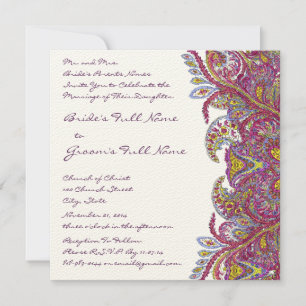 Mr. and Mrs.
Bride's Parents Names
Invite You to Celebrate the
Marriage of Their Daughter
Bride's Full Name
to
Groom's Full Name
Church of Christ
100 Church Street
City, State
November 21, 2014
three o'clock in the afternoon
Reception To Follow
Please R.S.V.P. By 11.07.14